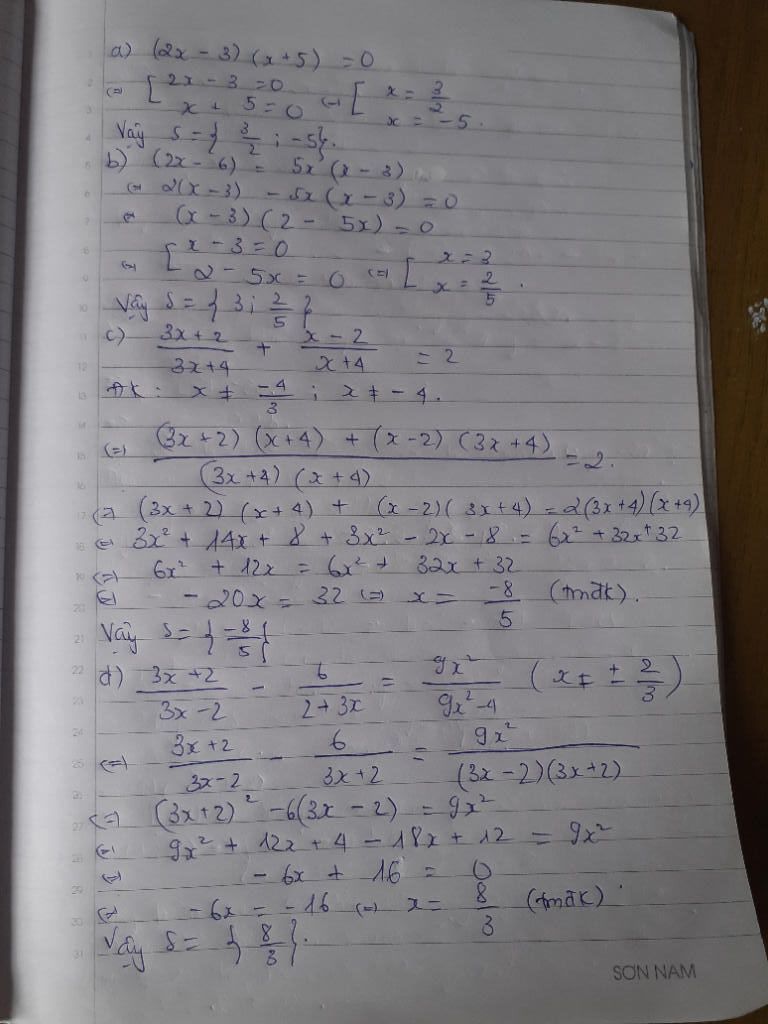 a) (2x - 3) (x + 5) = 0
(=) [ 2x - 3 = 0
x + 5 = 0 (=) [ x = 3/2
x = -5.
Vậy S = { 3/2 ; -5}.
b) (2x - 6) = 5x (x - 3)
(=) 2(x - 3) - 5x (x - 3) = 0
(=) (x - 3) (2 - 5x) = 0
(=) [ x - 3 = 0
2 - 5x = 0 (=) [ x = 3
x = 2/5 .
Vậy S = { 3 ; 2/5 }
c) (3x + 2)/(3x + 4) + (x - 2)/(x + 4) = 2
ĐK : x ≠ -4/3 ; x ≠ -4.
(=) ((3x + 2) (x + 4) + (x - 2) (3x + 4))/((3x + 4) (x + 4)) = 2.
(=) (3x + 2) (x + 4) + (x - 2) (3x + 4) = 2(3x + 4)(x + 4)
(=) 3x² + 14x + 8 + 3x² - 2x - 8 = 6x² + 32x + 32
(=) 6x² + 12x = 6x² + 32x + 32
(=) -20x = 32 (=) x = -8/5 (tmđk).
Vậy S = { -8/5 }
d) (3x + 2)/(3x - 2) - 6/(2 + 3x) = 9x²/(9x² - 4) ( x ≠ ± 2/3 )
(=) (3x + 2)/(3x - 2) - 6/(3x + 2) = 9x²/((3x - 2)(3x + 2))
(=) (3x + 2)² - 6(3x - 2) = 9x²
(=) 9x² + 12x + 4 - 18x + 12 = 9x²
(=) -6x + 16 = 0
(=) -6x = -16 (=) x = 8/3 (tmđk).
Vậy S = { 8/3 }.
SON NAM